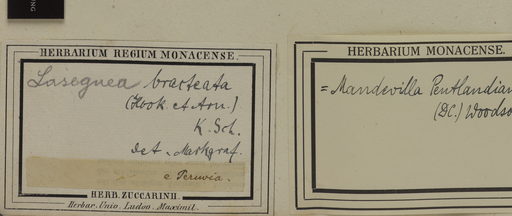 HERBARIUM REGIUM MONACENSE.
Laseguea bracteata
(Hook et Arn.)
K. Sch.
det. Markgraf.
e Peruvia.
HERB. ZUCCARINII.
Herbar. Univ. Ludov. Maximil.
HERBARIUM MONACENSE.
= Mandevilla Pentlandian
(DC.) Woodso